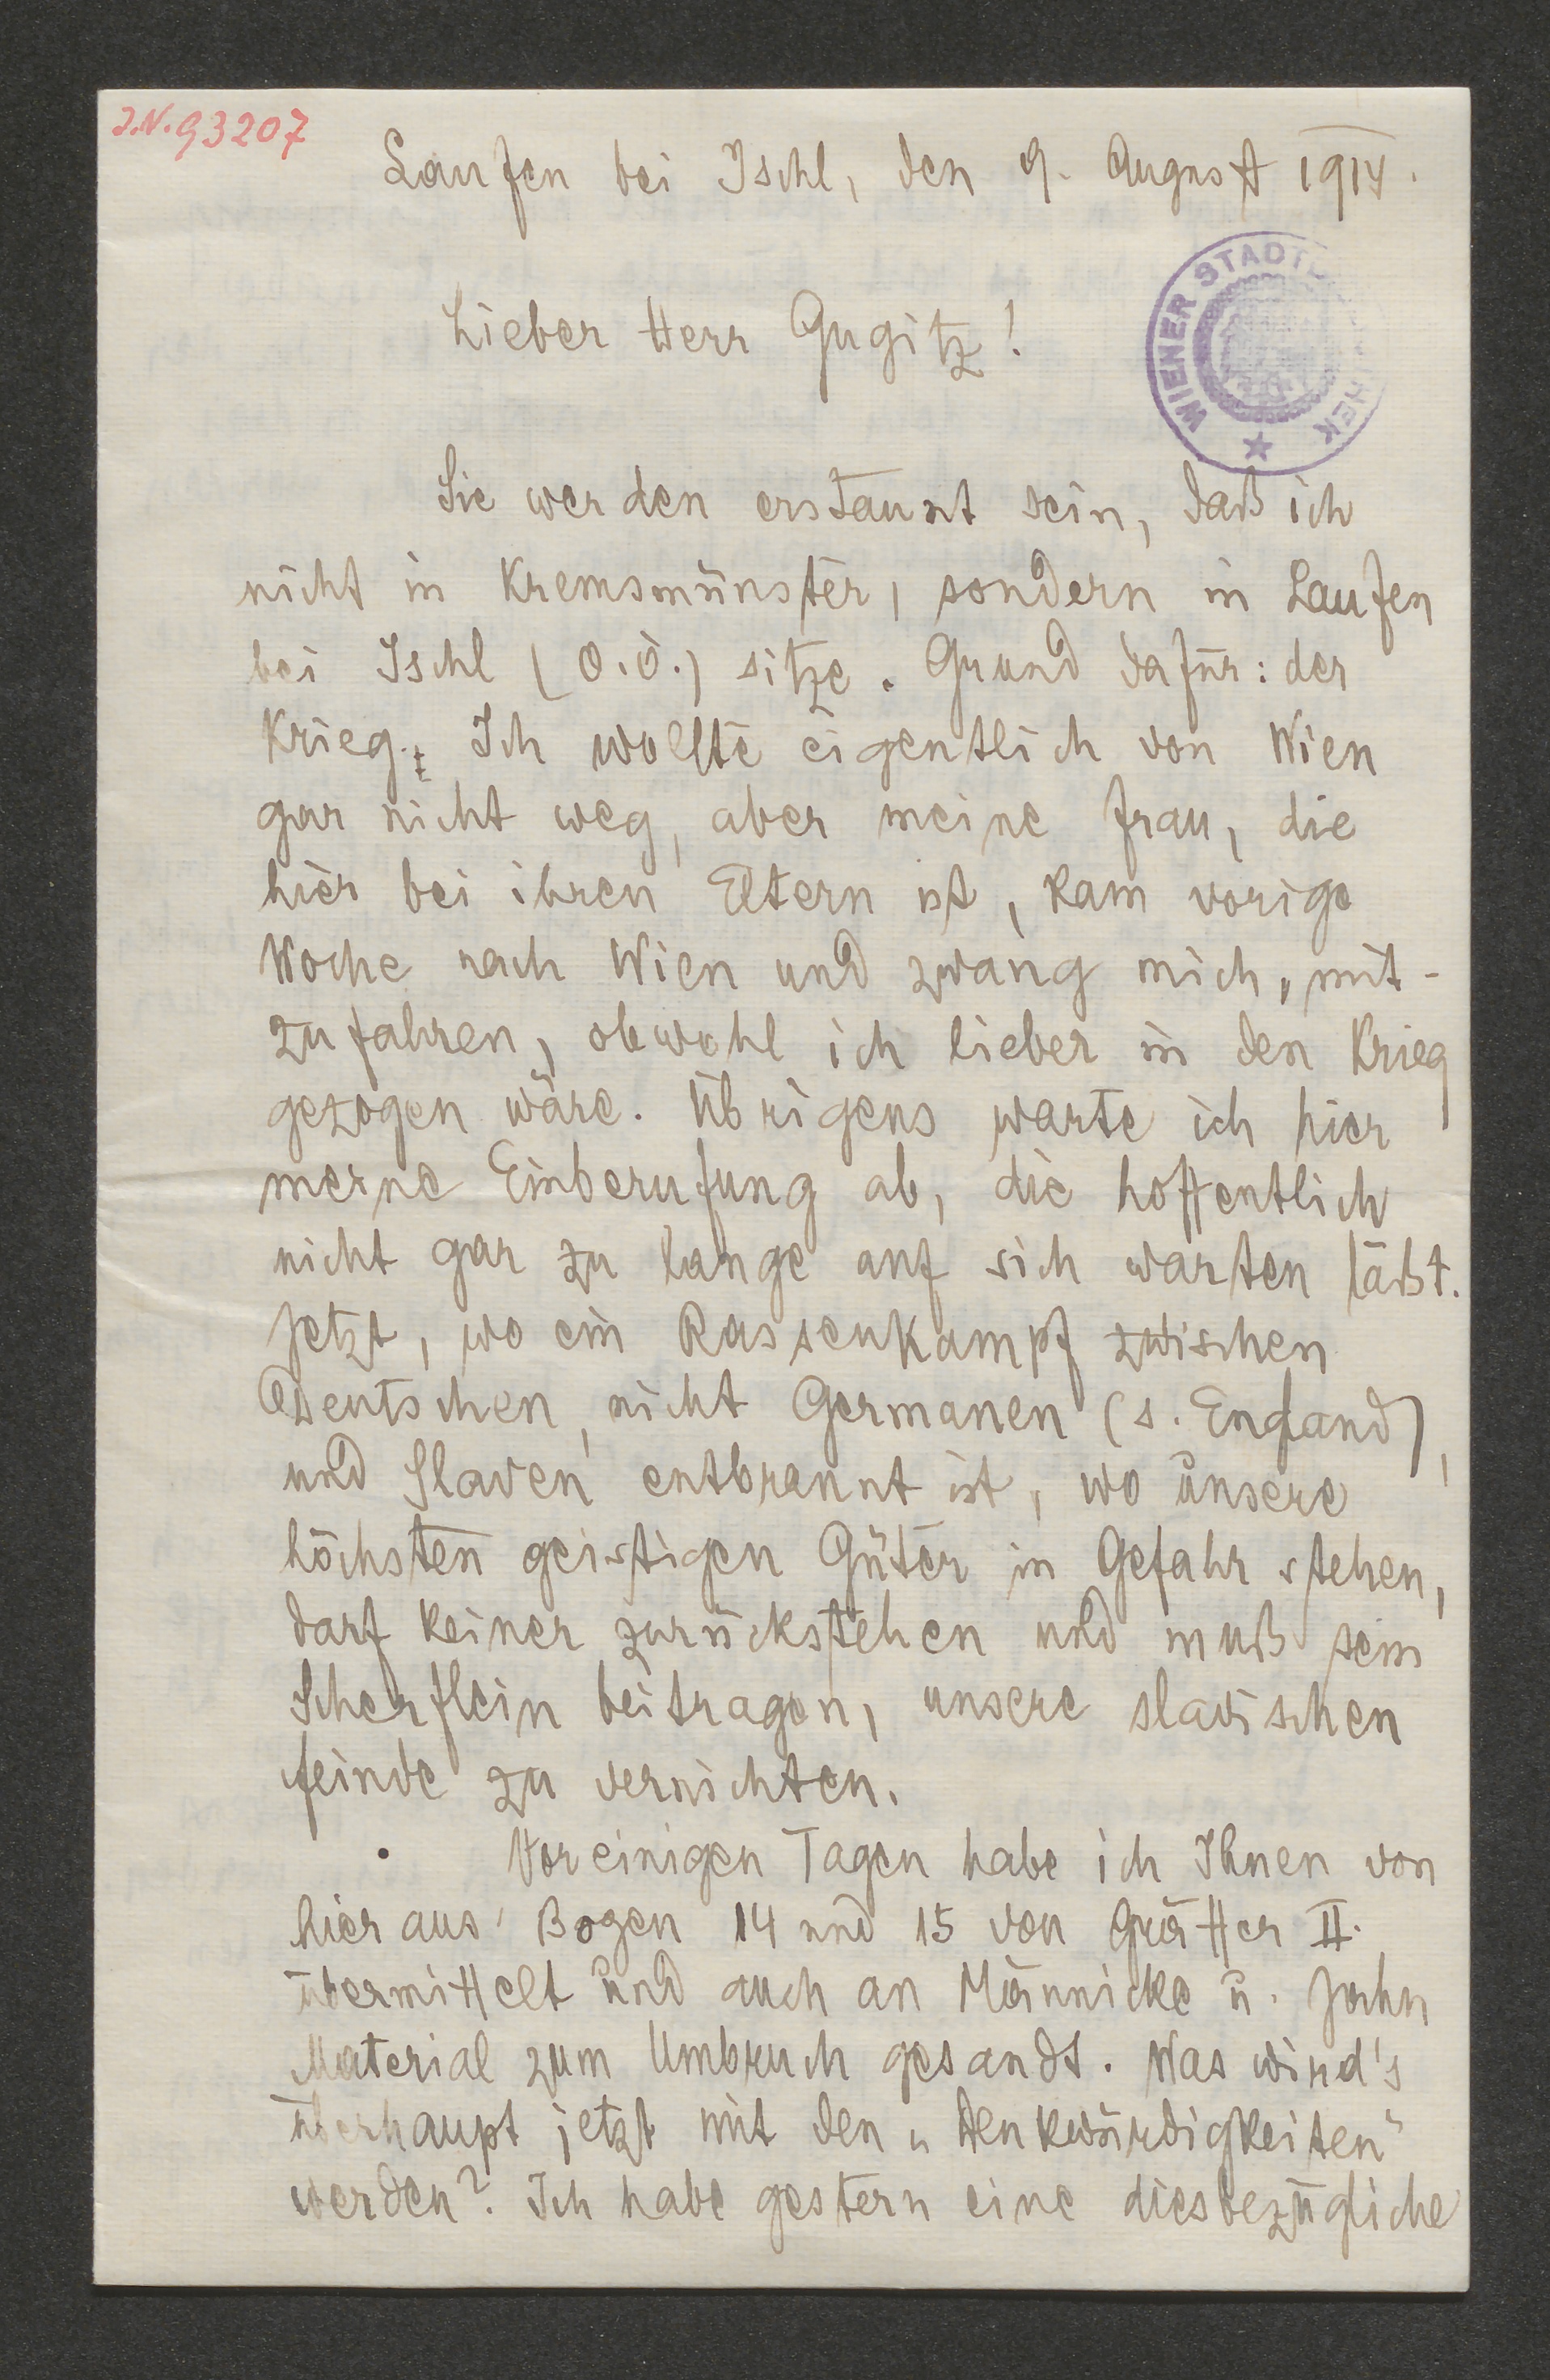 J.N. 93207
Laufen bei Ischl, den 9. August 1914.
WIENER STADT
HEK
Lieber Herr Gugitz!
Sie werden erstaunt sein, daß ich
nicht in Kremsmünster, sondern in Laufen
bei Ischl (O.Ö.) sitze. Grund dafür: der
Krieg. Ich wollte eigentlich von Wien
gar nicht weg, aber meine Frau, die
hier bei ihren Eltern ist, kam vorige
Woche nach Wien und zwang mich, mit-
zufahren, obwohl ich lieber in den Krieg
gezogen wäre. Übrigens warte ich hier
meine Einberufung ab, die hoffentlich
nicht gar zu lange auf sich warten läßt.
Jetzt, wo ein Rassenkampf zwischen
Deutschen, nicht Germanen (s. England),
und Slaven entbrannt ist, wo unsere
höchsten geistigen Güter in Gefahr stehen,
darf keiner zurückstehen und muß sein
Scherflein beitragen, unsere slavischen
Feinde zu vernichten.
Vor einigen Tagen habe ich Ihnen von
hier aus Bogen 14 und 15 von Gräffer II.
übermittelt und auch an Männicke u. Jahn
Material zum Umbruch gesandt. Was wird's
überhaupt jetzt mit den „Denkwürdigkeiten"
werden? Ich habe gestern eine diesbezügliche